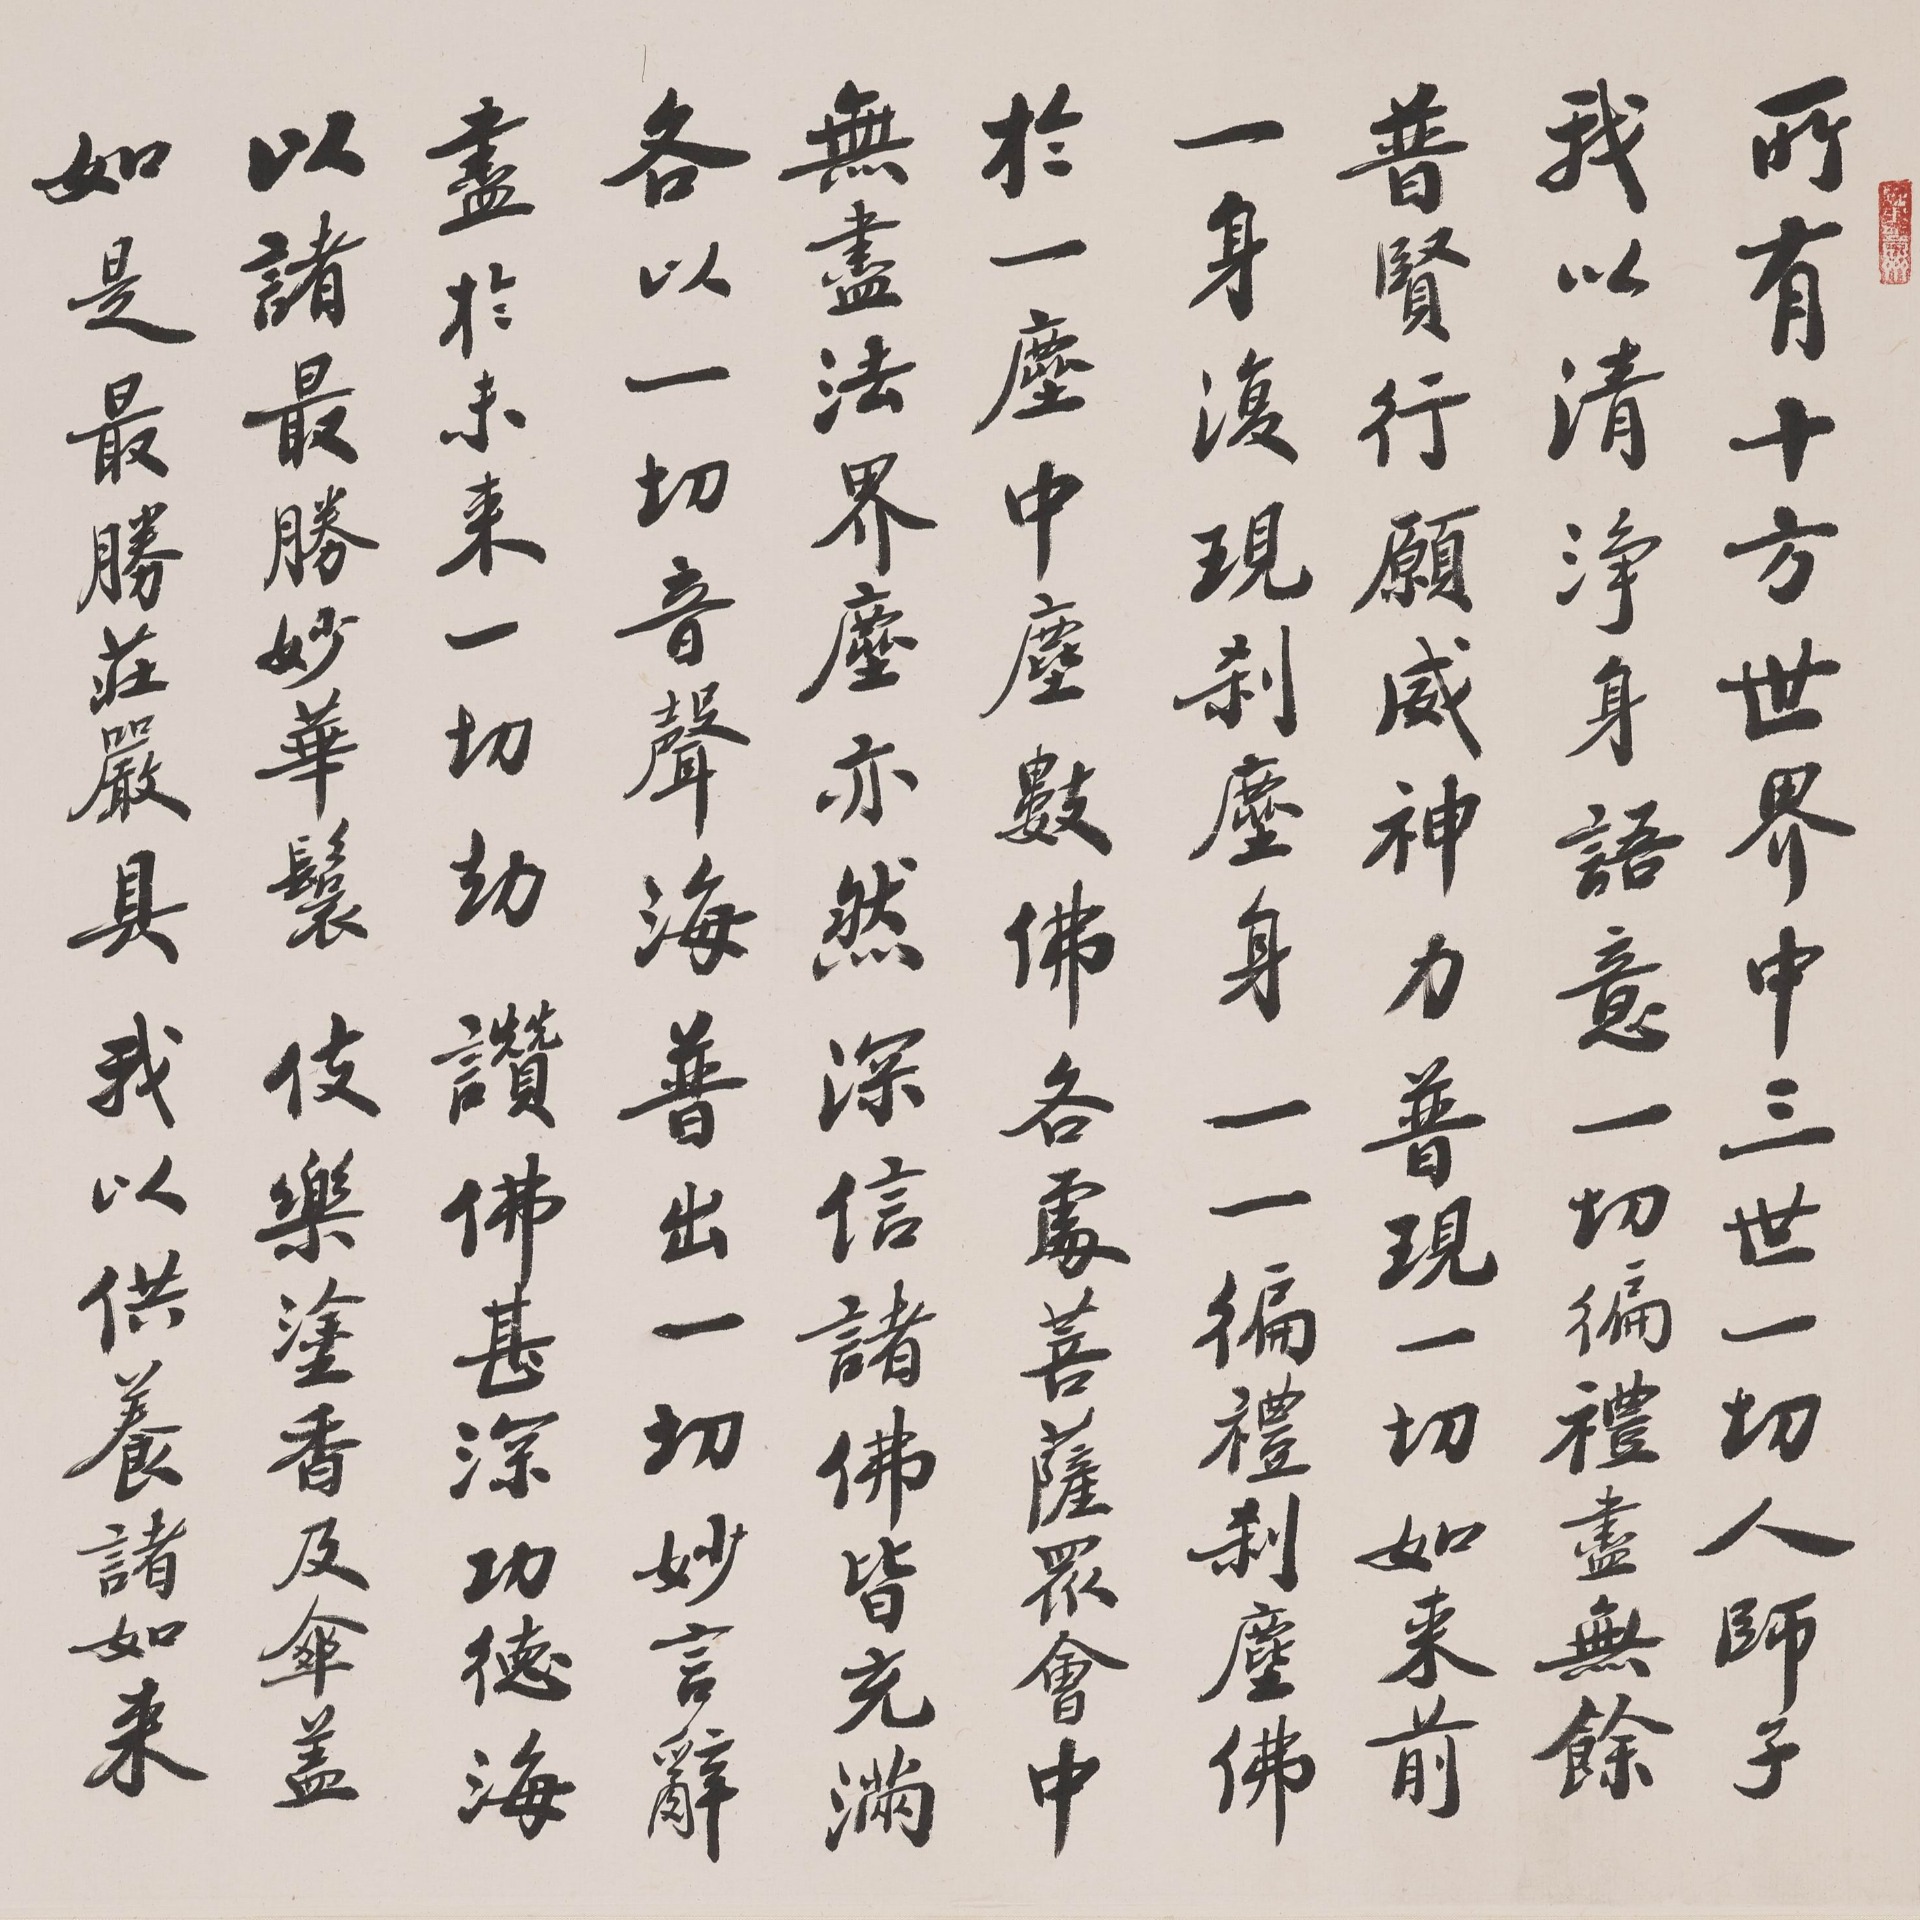 所有十方世界中三世一切人師子
我以清淨身語意一切徧禮盡無餘
普賢行願威神力普現一切如来前
一身復現刹塵身一一徧禮刹塵佛
於一塵中塵數佛各處菩薩眾會中
無盡法界塵亦然深信諸佛皆充滿
各以一切音聲海普出一切妙言辭
盡於未来一切劫讚佛甚深功德海
以諸最勝妙華鬘伎樂塗香及傘盖
如是最勝莊嚴具我以供養諸如来